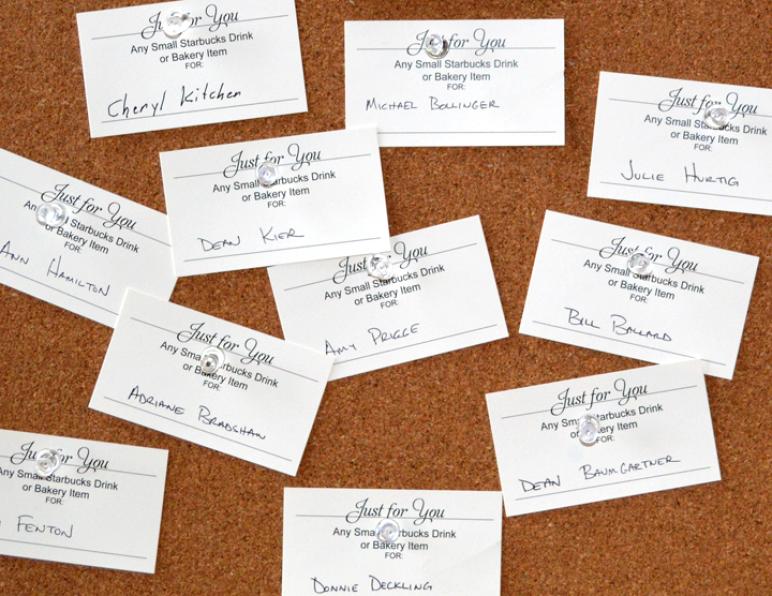 Just for You
Any Small Starbucks Drink
or Bakery Item
FOR:
Cheryl Kitchen
Just for You
Any Small Starbucks Drink
or Bakery Item
FOR:
MICHAEL BOLLINGER
Just for You
Any Small Starbucks Drink
or Bakery Item
FOR:
JULIE HURTIG
Just for You
Any Small Starbucks Drink
or Bakery Item
FOR:
DEAN KIER
Just for You
Any Small Starbucks Drink
or Bakery Item
FOR:
ANN HAMILTON
Just for You
Any Small Starbucks Drink
or Bakery Item
FOR:
AMY PRIGGE
Just for You
Any Small Starbucks Drink
or Bakery Item
FOR:
BILL BALLARD
Just for You
Any Small Starbucks Drink
or Bakery Item
FOR:
ADRIANE BRADSHAW
Just for You
Any Small Starbucks Drink
or Bakery Item
FOR:
DEAN BAUMGARTNER
Just for You
Any Small Starbucks Drink
or Bakery Item
FOR:
FENTON
Just for You
Any Small Starbucks Drink
or Bakery Item
FOR:
DONNIE DECKLING